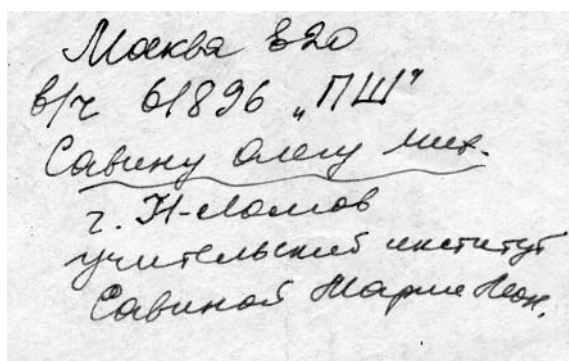 Москва Е-20
в/ч 61896 „ПШ"
Савину Олегу Мих.
г. Н-Ломов
учительский институт
Савиной Марии Леон.